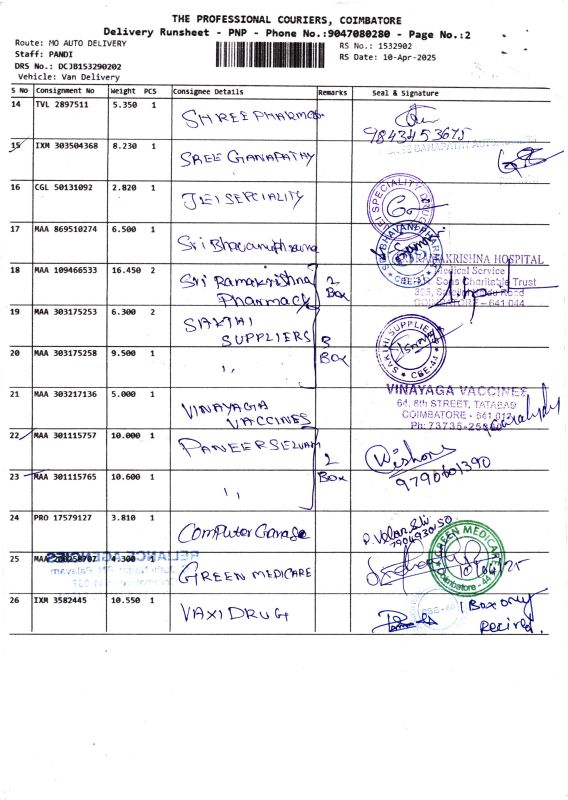 THE PROFESSIONAL COURIERS, COIMBATORE
Delivery Runsheet - PNP - Phone No.:9047080280 - Page No.:2
Route: MO AUTO DELIVERY
RS No.: 1532902
Staff: PANDI
RS Date: 10-Apr-2025
DRS No.: DCJB153290202
Vehicle: Van Delivery
S No Consignment No Weight PCS Consignee Details Remarks Seal & Signature
14 TVL 2897511 5.350 1 SHREE PHARMA
9843453675
15 IXM 303504368 8.230 1 SREE GANAPATHY
16 CGL 50131092 2.820 1 JEI SEPCIALITY
SPECIALITY DRUG
17 MAA 869510274 6.500 1 Sri Bhavani Pharma
BHAVANI PHARM
CBE-44
18 MAA 109466533 16.450 2 Sri Ramakrishna
Pharmacy
2
Box
RAMAKRISHNA HOSPITAL
Medical Service
Sons Charitable Trust
COIMBATORE - 641 044
19 MAA 303175253 6.300 2 SAKTHI
SUPPLIERS
3
BOX
SAKTHI SUPPLIERS
CBE-44
20 MAA 303175258 9.500 1 ''
21 MAA 303217136 5.000 1 VINAYAGA
VACCINES
VINAYAGA VACCINES
64, 8th STREET, TATABAD
COIMBATORE - 641 012
22 MAA 301115757 10.000 1 PANEERSELVAM
2
Box
9790601390
23 MAA 301115765 10.600 1 ''
24 PRO 17579127 3.810 1 Computer Garage
25 MAA 4.300 GREEN MEDICARE
RELIANCE AGENCIES
GREEN MEDICARE
Coimbatore - 44
26 IXM 3582445 10.550 1 VAXI DRUG
CBE-44
1 Box only
Recived.